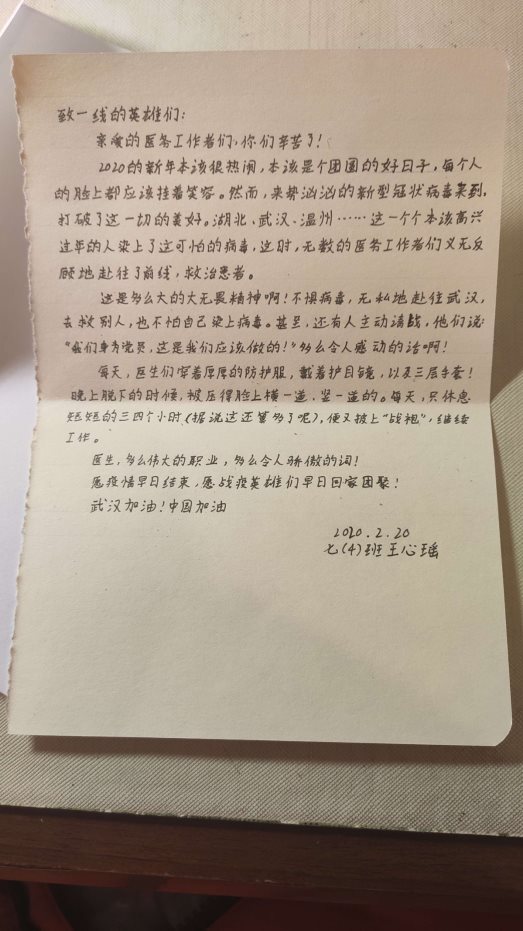 致一线的英雄们:
亲爱的医务工作者们,你们辛苦了!
2020的新年本该很热闹,本该是个团圆的好日子,每个人
的脸上都应该挂着笑容。然而,来势汹汹的新型冠状病毒来到,
打破了这一切的美好。湖北、武汉、温州……这一个个本该高兴
过年的人染上了这可怕的病毒,这时,无数的医务工作者们义无反
顾地赴往了前线,救治患者。
这是多么大的大无畏精神啊!不惧病毒,无私地赴往武汉,
去救别人,也不怕自己染上病毒。甚至,还有人主动请战,他们说:
“我们身为党员,这是我们应该做的!”多么令人感动的话啊!
每天,医生们穿着厚厚的防护服,戴着护目镜,以及三层手套!
晚上脱下的时候,被压得脸上横一道、竖一道的。每天,只休息
短短的三四个小时(据说这还算多了呢),便又披上“战袍”,继续
工作。
医生,多么伟大的职业,多么令人骄傲的词!
愿疫情早日结束,愿战疫英雄们早日回家团聚!
武汉加油!中国加油
2020.2.20
七(4)班王心瑶